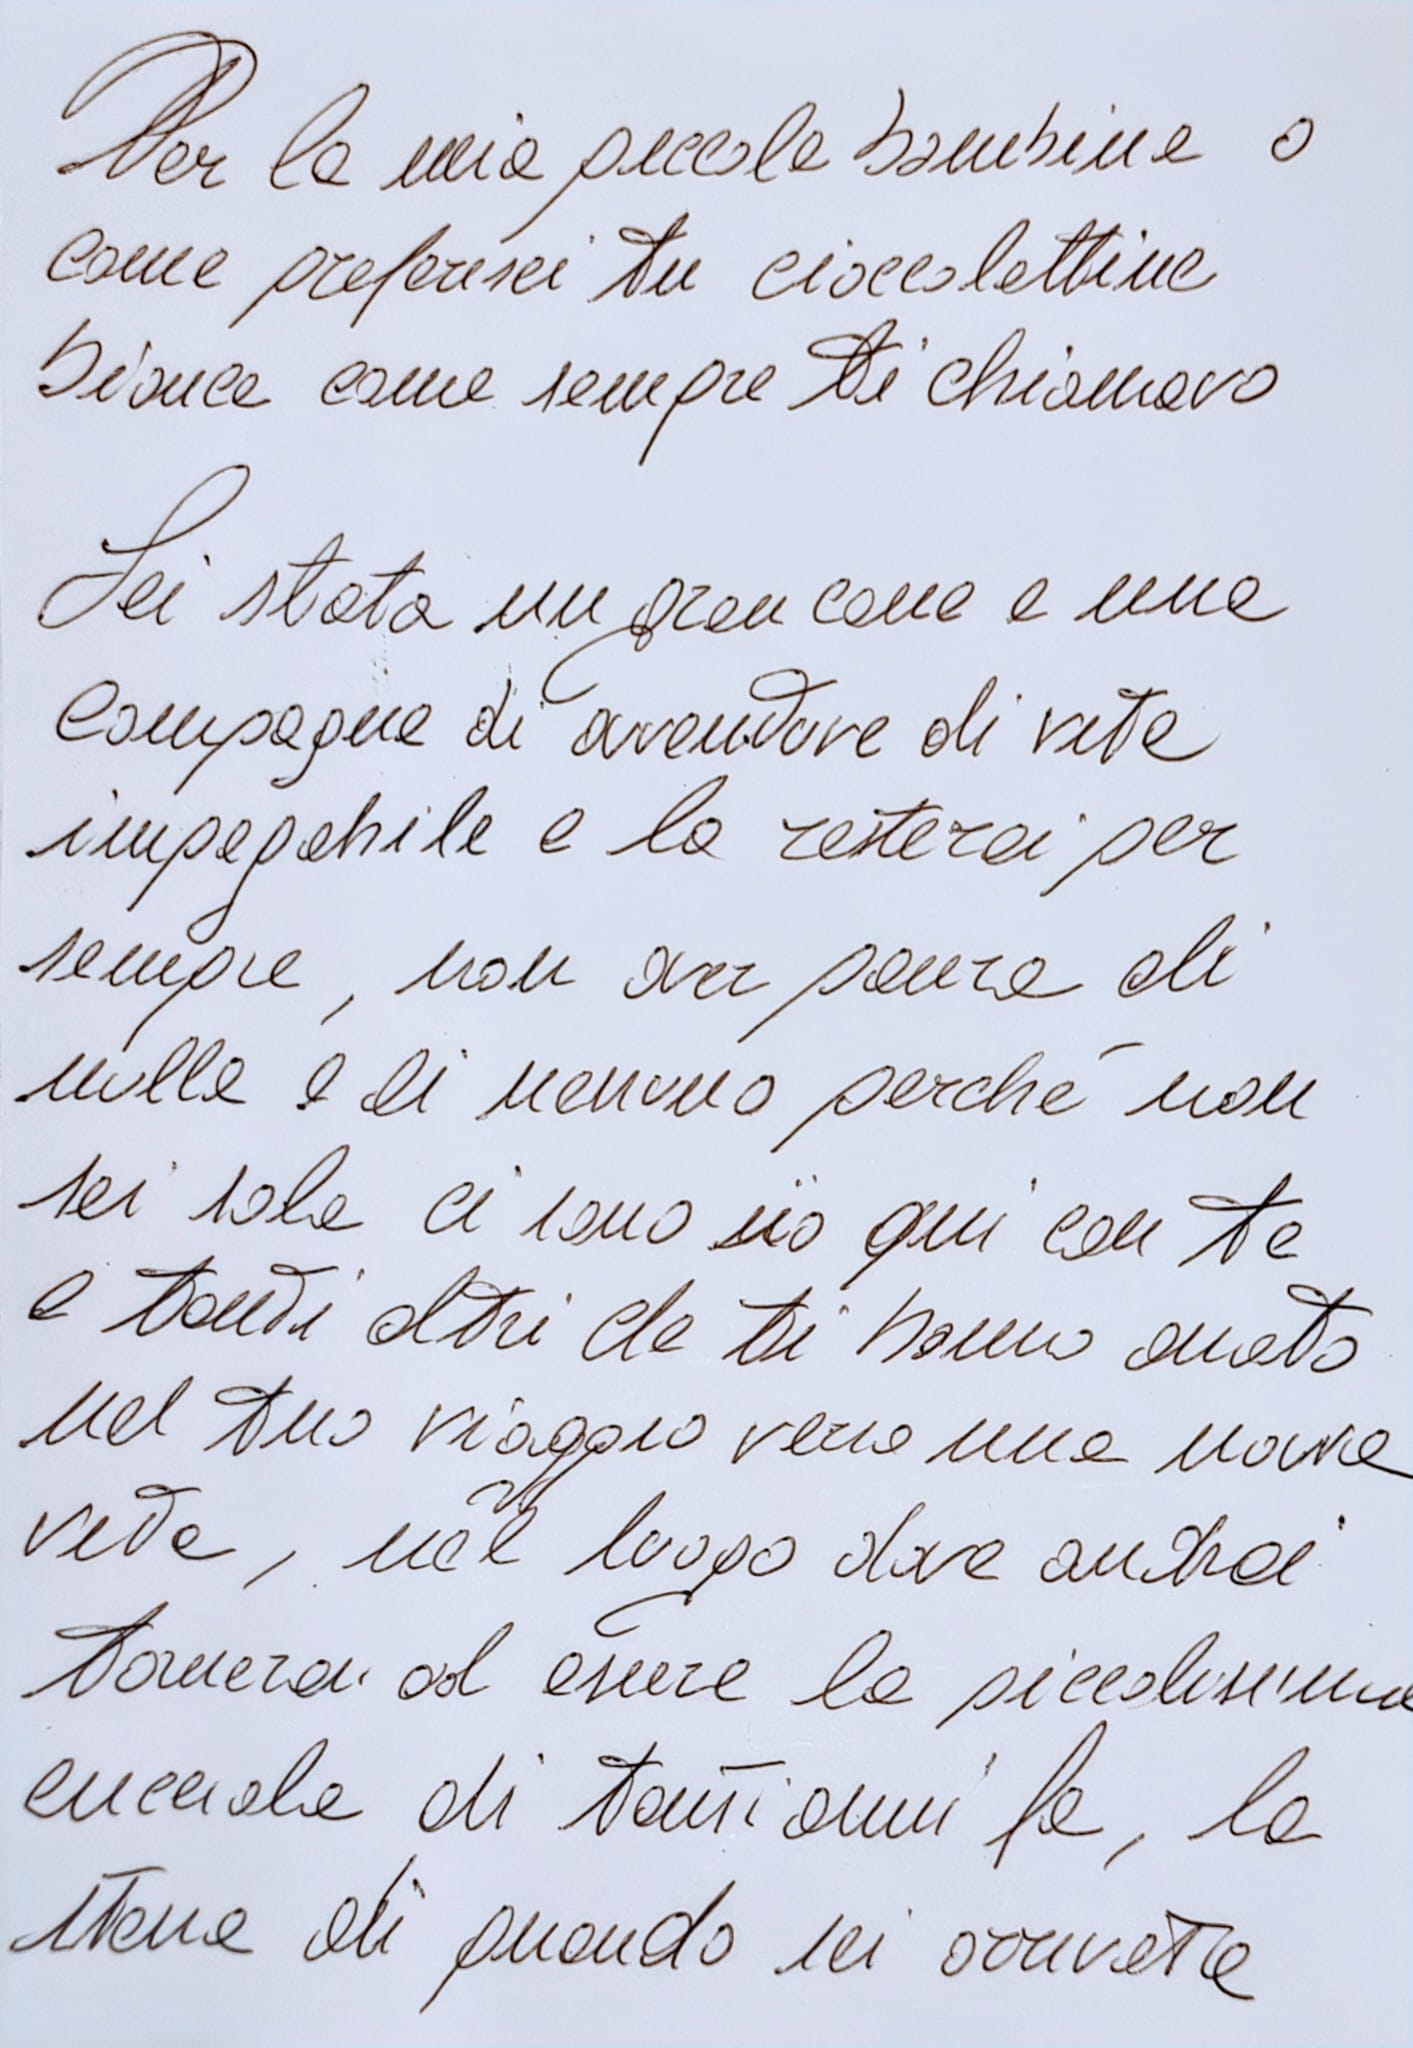 Per la mia piccola bambina o
come preferisci tu cioccolattina
bianca come sempre ti chiamavo
Sei stata un gran cane e una
compagna di avventure di vita
impagabile e lo resterai per
sempre, non aver paura di
nulla e di nessuno perché non
sei sola ci sono io qui con te
e tanti altri che ti hanno amato
nel tuo viaggio verso una nuova
vita, nel luogo dove andrai
tornerai ad essere la piccolissima
cucciola di tanti anni fa, la
stessa di quando sei arrivata